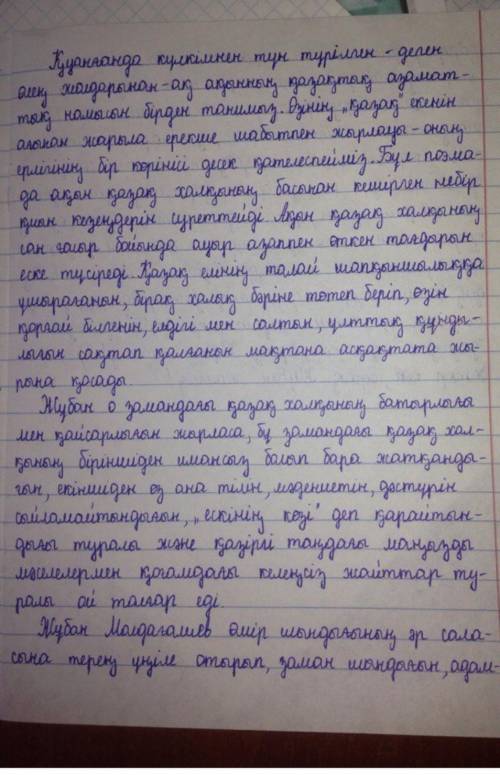 Қуанғанда күлкімнен түн түрілген - деген
өлең жолдарынан-ақ ақынның қазақтық азамат-
тық намысын бірден танимыз. Өзінің „қазақ" екенін
ағынан жарыла ерекше шабытпен жырлауы - оның
ерлігінің бір көрінісі десек қателеспейміз. Бұл поэма-
да ақын қазақ халқының басынан кешірген небір
қиын кезеңдерін суреттейді. Ақын қазақ халқының
сан ғасыр бойында ауыр азаппен өткен таңдарын
еске түсіреді. Қазақ елінің талай шапқыншылыққа
ұшырағанын, бірақ халық бәріне төтеп беріп, өзін
қорғай білгенін, елдігі мен салтын, ұлттық құнды-
лығын сақтап қалғанын мақтана асқақтата жы-
рына қосады.
Жұбан о замандағы қазақ халқының батырлығы
мен қайсарлығын жырласа, бұ замандағы қазақ хал-
қының біріншіден имансыз болып бара жатқанды-
ғын, екіншіден өз ана тілін, мәдениетін, дәстүрін
сыйламайтындығын, „ескінің көзі" деп қарайтын-
дығы туралы және қазіргі таңдағы маңызды
мәселелермен қоғамдағы келеңсіз жайттар ту-
ралы ой толғар еді.
Жұбан Молдағалиев өмір шындығының әр сала-
сына терең үңіле отырып, заман шындығын, адам-